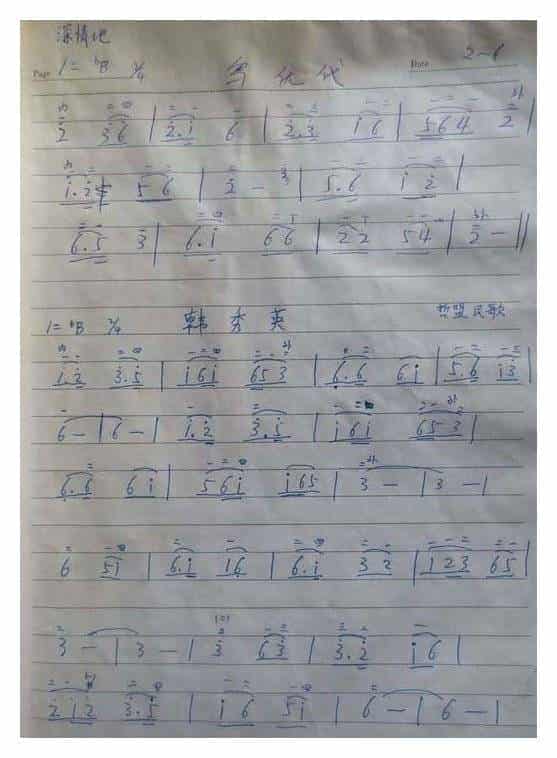 深情地
Page 1=♭B 2/4 乌优代 Date 2-6
2 36 | 2.1 6 | 2.3 16 | 564 2 |
1.2 56 | 2 - | 5.6 12 |
6.5 3 | 6.1 66 | 22 54 | 2 - ||
1=♭B 2/4 韩秀英 哲盟民歌
1.2 3.5 | 161 653 | 6.6 61 | 5.6 13 |
6 - | 6 - | 1.2 3.5 | 161 653 |
6.6 61 | 561 165 | 3 - | 3 - |
6 51 | 6.1 16 | 6.1 32 | 123 65 |
3 - | 3 - | 3 63 | 3.2 16 |
212 3.5 | 16 51 | 6 - | 6 - |